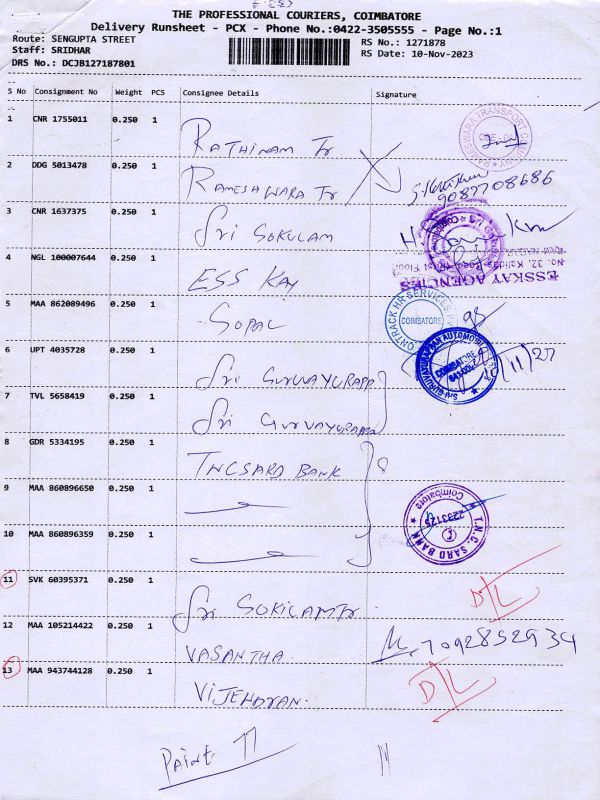 THE PROFESSIONAL COURIERS, COIMBATORE
Delivery Runsheet - PCX - Phone No.:0422-3505555 - Page No.:1
Route: SENGUPTA STREET
RS No.: 1271878
Staff: SRIDHAR
RS Date: 10-Nov-2023
DRS No.: DCJB127187801
S No Consignment No Weight PCS Consignee Details Signature
1 CNR 1755011 0.250 1 RATHINAM Tr
2 DDG 5013478 0.250 1 RAMESHWARA Tr
9087708686
3 CNR 1637375 0.250 1 Sri SOKULAM
4 NGL 100007644 0.250 1 ESS KAY
ESSKAY AGENCIES
5 MAA 862089496 0.250 1 GOPAL
ONTRACK HR SERVICES
COIMBATORE
6 UPT 4035728 0.250 1 Sri GURUVAYURAPP
COIMBATORE
7 TVL 5658419 0.250 1 Sri
8 GDR 5334195 0.250 1 TNCSARD BANK
9 MAA 860896650 0.250 1
T.N.C. SARD BANK
Coimbatore
10 MAA 860896359 0.250 1
11 SVK 60395371 0.250 1 Sri D/L
12 MAA 105214422 0.250 1 VASANTHA 7092852934
13 MAA 943744128 0.250 1 VIJENDRAN D/L